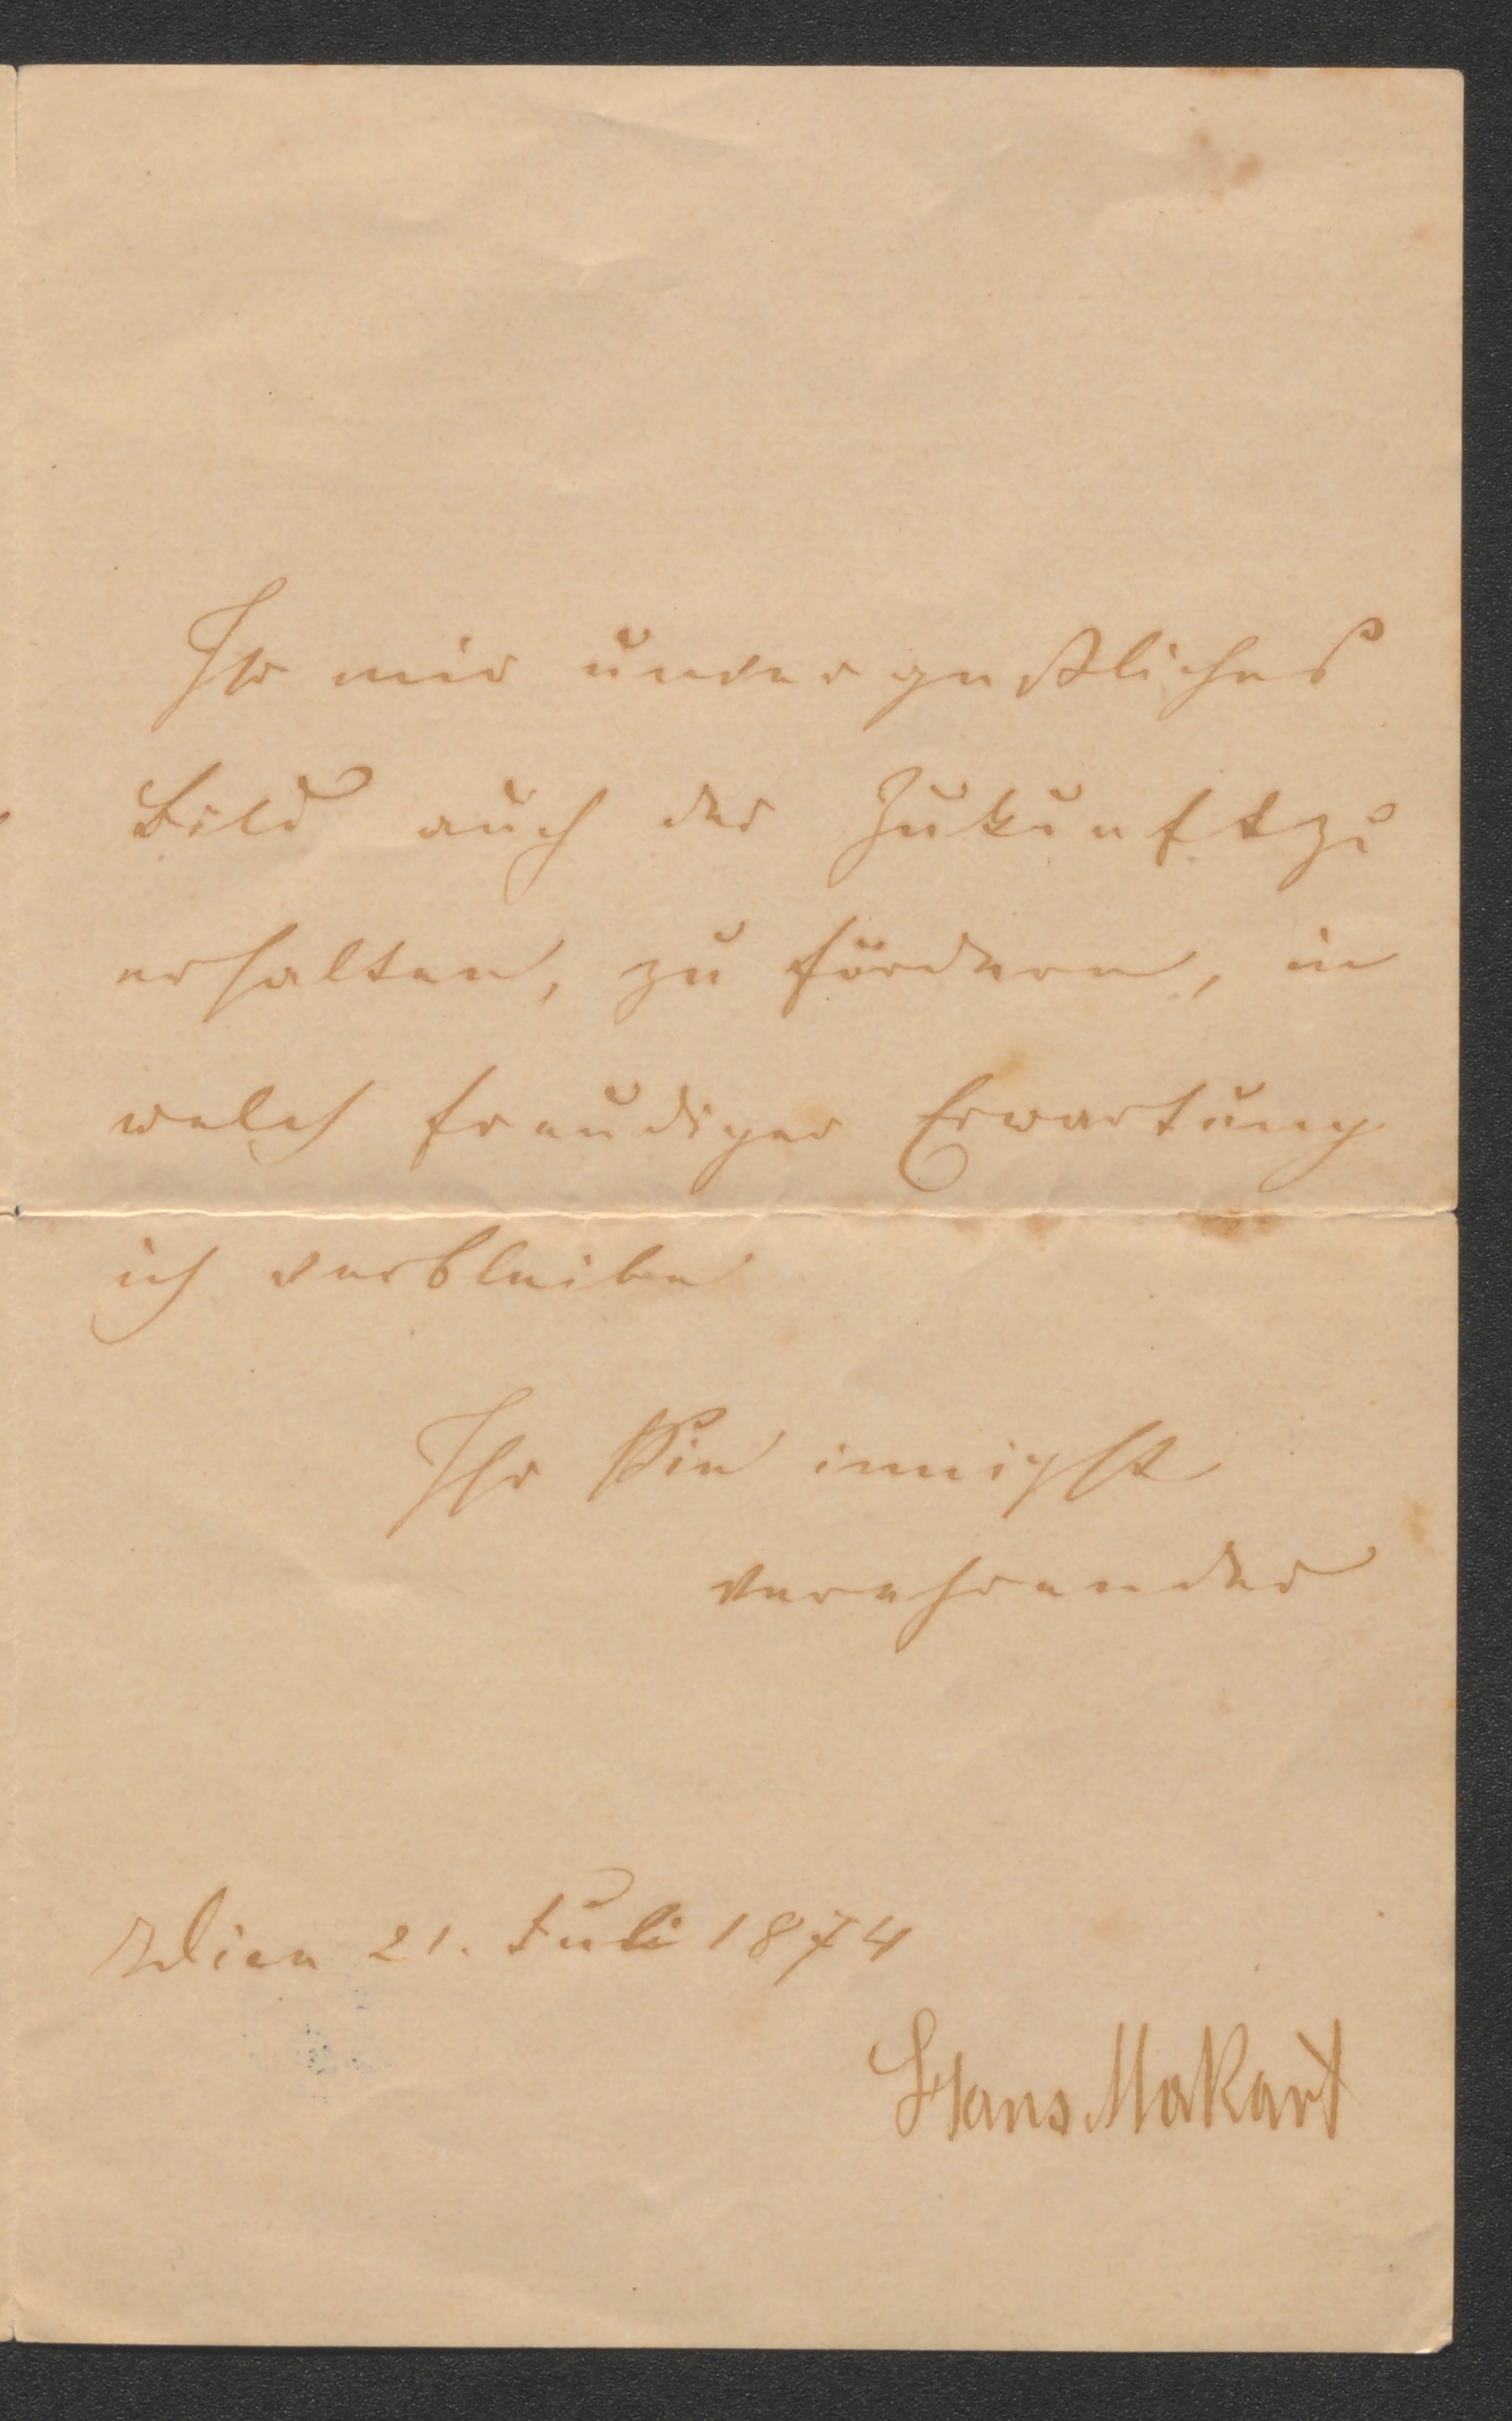 Ihr mir unvergeßliches
Bild auch der Zukunft zu
erhalten, zu fördern, in
welch freudiger Erwartung
ich verbleibe
Ihr Sie innigst
verehrender
Wien 21. Juli 1874
Hans Makart